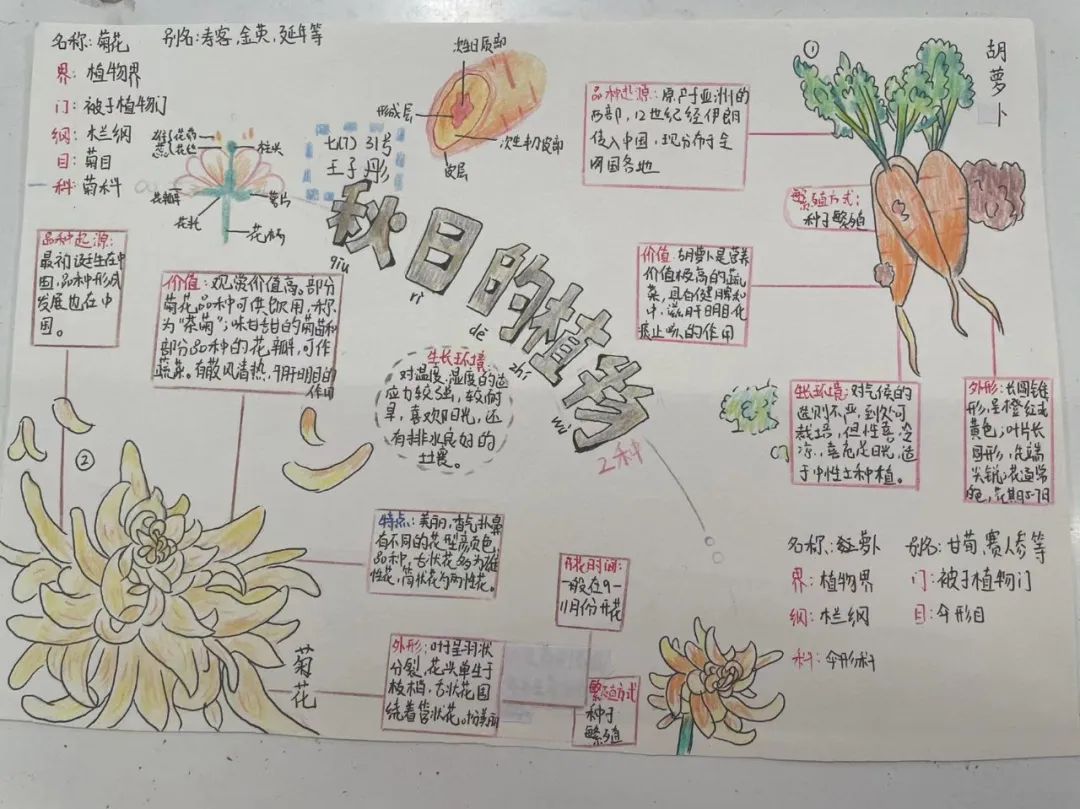 名称：菊花 别名：寿客，金英，延年等
界：植物界
门：被子植物门
纲：木兰纲
目：菊目
科：菊科
雄蕊
柱头
花瓣
萼片
花托
花柄
次生木质部
形成层
次生韧皮部
皮层
七(7) 31号
王子彤
秋日的植物
qiū
rì
dē
zhí
wù
2种
①
胡萝卜
品种起源：原产于亚洲的
西部，12世纪经伊朗
传入中国，现分布于全
国各地
繁殖方式：
种子繁殖
价值：胡萝卜是营养
价值极高的蔬
菜，具有健脾和
中，滋肝明目，化
痰止咳的作用
生长环境：对气候的
选则不严，到处可
栽培，但性喜冷
凉，喜充足日光，适
于中性土种植。
外形：长圆锥
形，呈橙红或
黄色；叶片长
圆形，先端
尖锐；花通常
白色，花期5-7月
品种起源：
最初诞生在中
国，品种形成
发展也在中
国。
价值：观赏价值高。部分
菊花品种可供饮用，称
为“茶菊”；味甘甜的菊苗和
部分品种的花瓣，可作
蔬菜。有散风清热，明肝明目的
作用
生长环境：
对温度、湿度的适
应力较强，较耐
旱，喜欢阳光，还
有排水良好的
土壤。
②
特点：美丽，香气扑鼻
有不同的花型高颜色
品种，舌状花多为雌
性花，筒状花为两性花。
开花时间：
一般在9-
11月份开花
外形：叶子呈羽状
分裂，花头单生于
枝梢，舌状花围
绕着管状花。
繁殖方式
种子
繁殖
菊花
名称：红萝卜 别名：甘荀，赛人参等
界：植物界 门：被子植物门
纲：木兰纲 目：伞形目
科：伞形科